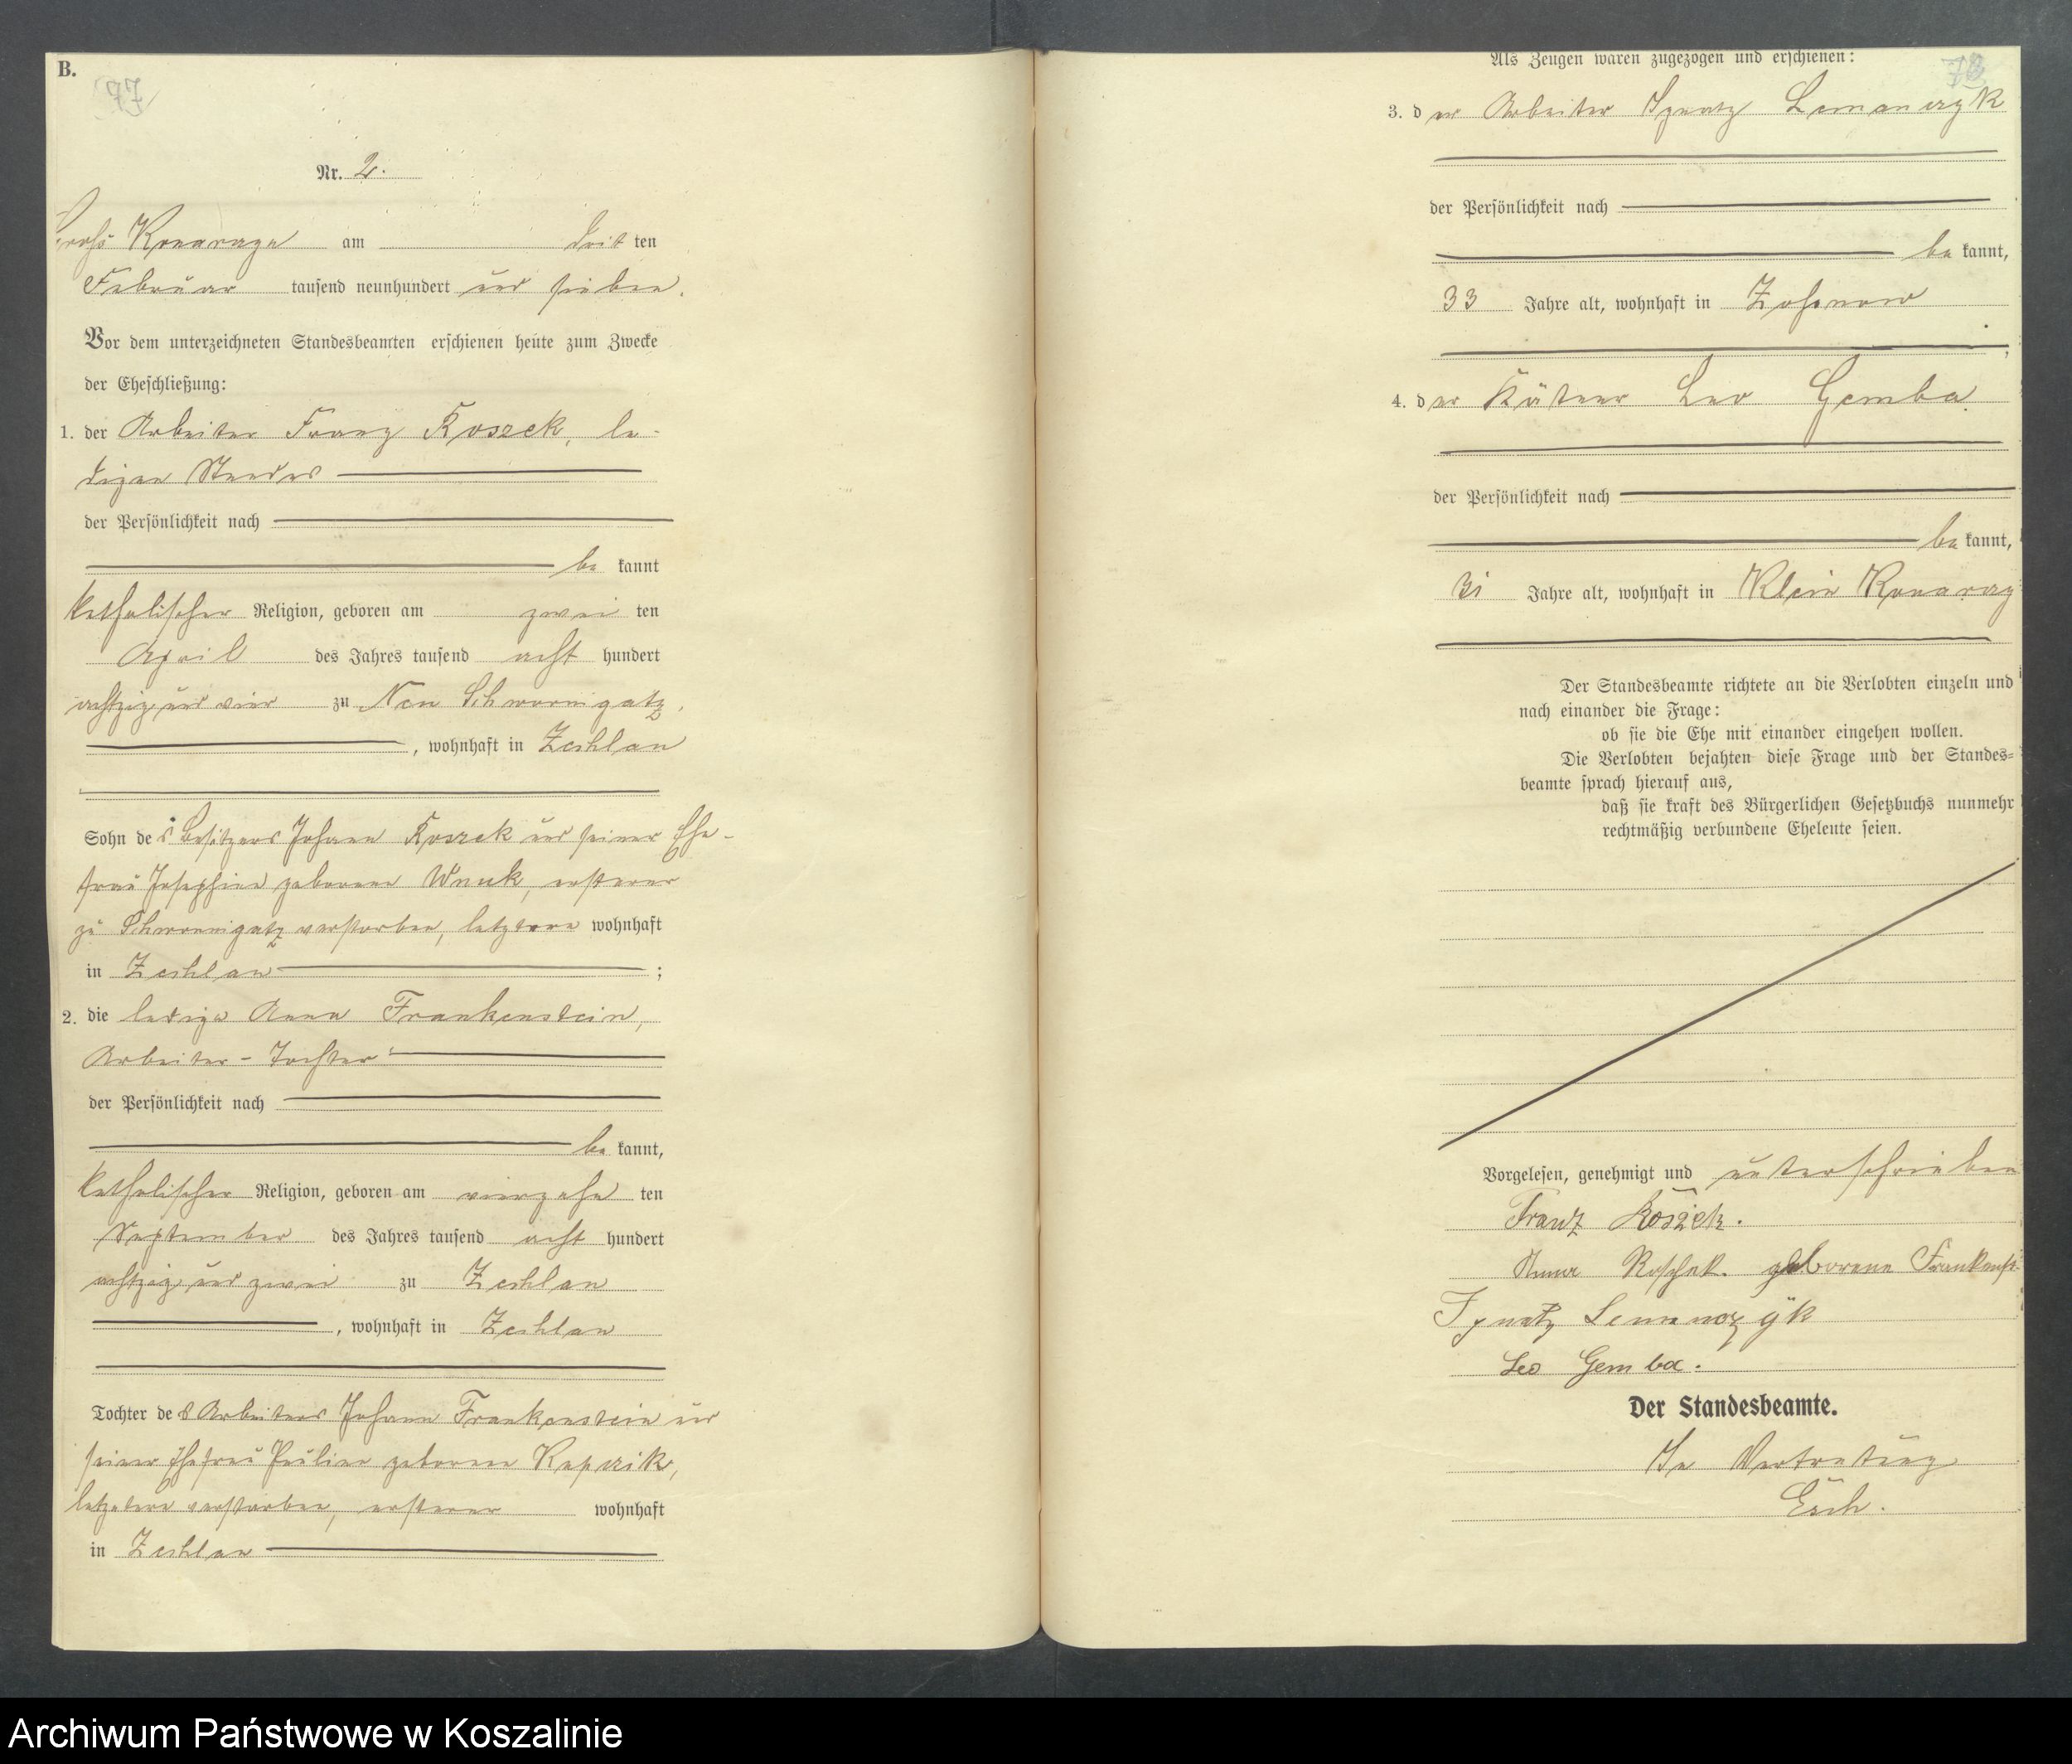 B.
77
Nr. 2.
Gross Konarzyn am drit ten
Februar tausend neunhundert und sieben.
Vor dem unterzeichneten Standesbeamten erschienen heute zum Zwecke
der Eheschließung:
1. der Arbeiter Franz Koszek, le-
digen Standes
der Persönlichkeit nach
be kannt
katholischer Religion, geboren am zwei ten
April des Jahres tausend acht hundert
achtzig und vier zu Neu Schwornigatz,
, wohnhaft in Zechlau
Sohn des Besitzers Johann Koszek und seiner Ehe-
frau Josephine geborene Wnuk, ersterer
zu Schwornigatz verstorben, letztere wohnhaft
in Zechlau ;
2. die ledige Anna Frankenstein,
Arbeiter-Tochter
der Persönlichkeit nach
be kannt,
katholischer Religion, geboren am vierzehn ten
September des Jahres tausend acht hundert
achtzig und zwei zu Zechlau
, wohnhaft in Zechlau
Tochter des Arbeiters Johann Frankenstein und
seiner Ehefrau Pauline geborene
letztere verstorben, ersterer wohnhaft
in Zechlau
Als Zeugen waren zugezogen und erschienen:
78
3. der Arbeiter Ignatz Lemanczyk
der Persönlichkeit nach
be kannt,
33 Jahre alt, wohnhaft in
4. der Kätner Leo Gemba
der Persönlichkeit nach
be kannt,
31 Jahre alt, wohnhaft in Klein Konarzy
Der Standesbeamte richtete an die Verlobten einzeln und
nach einander die Frage:
ob sie die Ehe mit einander eingehen wollen.
Die Verlobten bejahten diese Frage und der Standes-
beamte sprach hierauf aus,
daß sie kraft des Bürgerlichen Gesetzbuchs nunmehr
rechtmäßig verbundene Eheleute seien.
Vorgelesen, genehmigt und unterschrieben
Franz Koszek.
Anna Koschek geborene Frankenst
Ignatz Lemanczyk
Leo Gemba.
Der Standesbeamte.
In Vertretung
Esch.
Archiwum Państwowe w Koszalinie